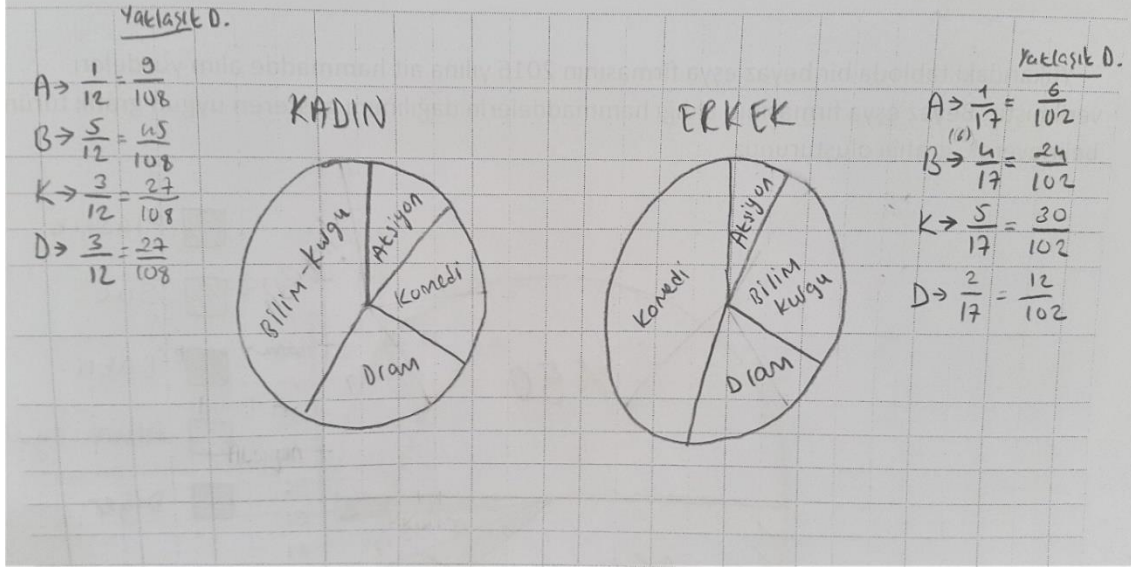 Yaklaşık D.
A → 1/12 = 9/108
B → 5/12 = 45/108
K → 3/12 = 27/108
D → 3/12 = 27/108
KADIN
Bilim-Kurgu
Aksiyon
Komedi
Dram
ERKEK
Komedi
Aksiyon
Bilim
Kurgu
Dram
Yaklaşık D.
A → 1/17 = 6/102
(6)
B → 4/17 = 24/102
K → 5/17 = 30/102
D → 2/17 = 12/102